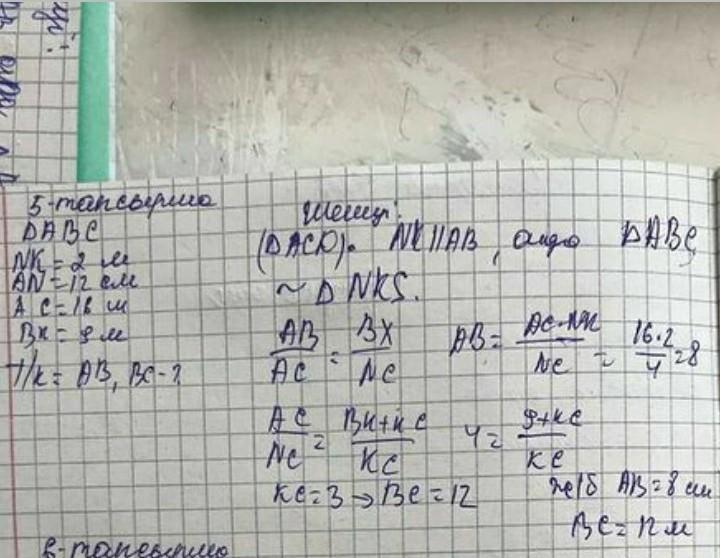 5-тапсырма
DABC
NK = 2 м
AN = 12 см
AC = 16 м
BK = 9 м
T/k = AB, BC - ?
Шешуі:
(DACD). NK||AB, онда DABC
~ D NKS.
AB/AC = BX/NC AB = AC·NK/NC = 16·2/4 = 8
AC/NC = BK+KC/KC 4 = 9+KC/KC
KC=3 → BC = 12
AB = 8 см
BC = 12 м
6-тапсырма